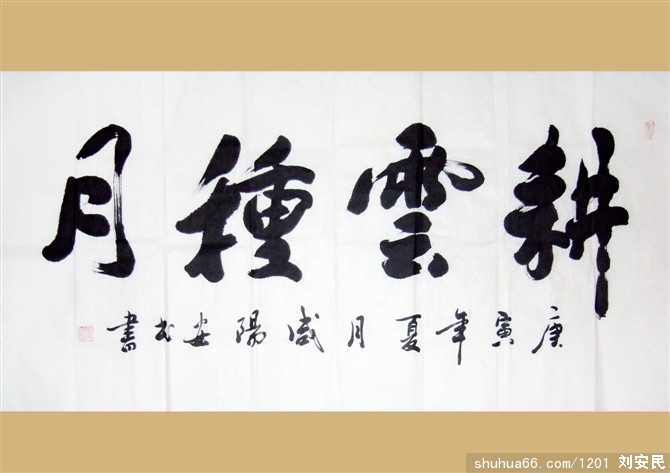 耕雲種月
庚寅年夏月咸陽安民書
shuhua66.com/1201 刘安民